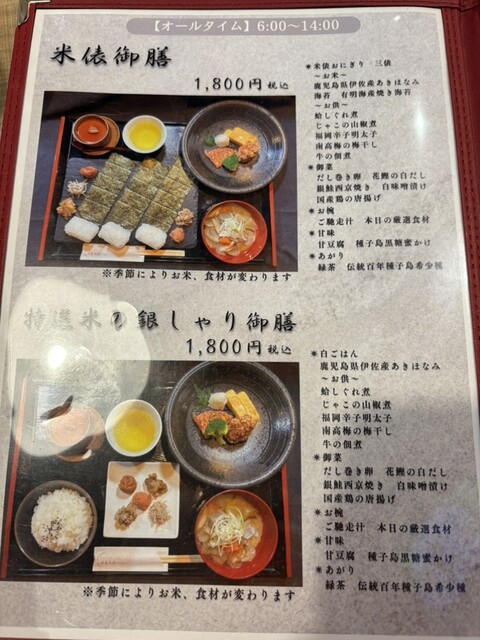 【オールタイム】6:00〜14:00
米俵御膳
1,800円 税込
＊米俵おにぎり 三俵
〜お米〜
鹿児島県伊佐産あきほなみ
海苔 有明海産焼き海苔
〜お供〜
蛤しぐれ煮
じゃこの山椒煮
福岡辛子明太子
南高梅の梅干し
牛の佃煮
＊御菜
だし巻き卵 花鰹の白だし
銀鮭西京焼き 白味噌漬け
国産鶏の唐揚げ
＊お椀
ご馳走汁 本日の厳選食材
＊甘味
甘豆腐 種子島黒糖蜜かけ
＊あがり
緑茶 伝統百年種子島希少種
※季節によりお米、食材が変わります
特選米の銀しゃり御膳
1,800円 税込
＊白ごはん
鹿児島県伊佐産あきほなみ
〜お供〜
蛤しぐれ煮
じゃこの山椒煮
福岡辛子明太子
南高梅の梅干し
牛の佃煮
＊御菜
だし巻き卵 花鰹の白だし
銀鮭西京焼き 白味噌漬け
国産鶏の唐揚げ
＊お椀
ご馳走汁 本日の厳選食材
＊甘味
甘豆腐 種子島黒糖蜜かけ
＊あがり
緑茶 伝統百年種子島希少種
※季節によりお米、食材が変わります